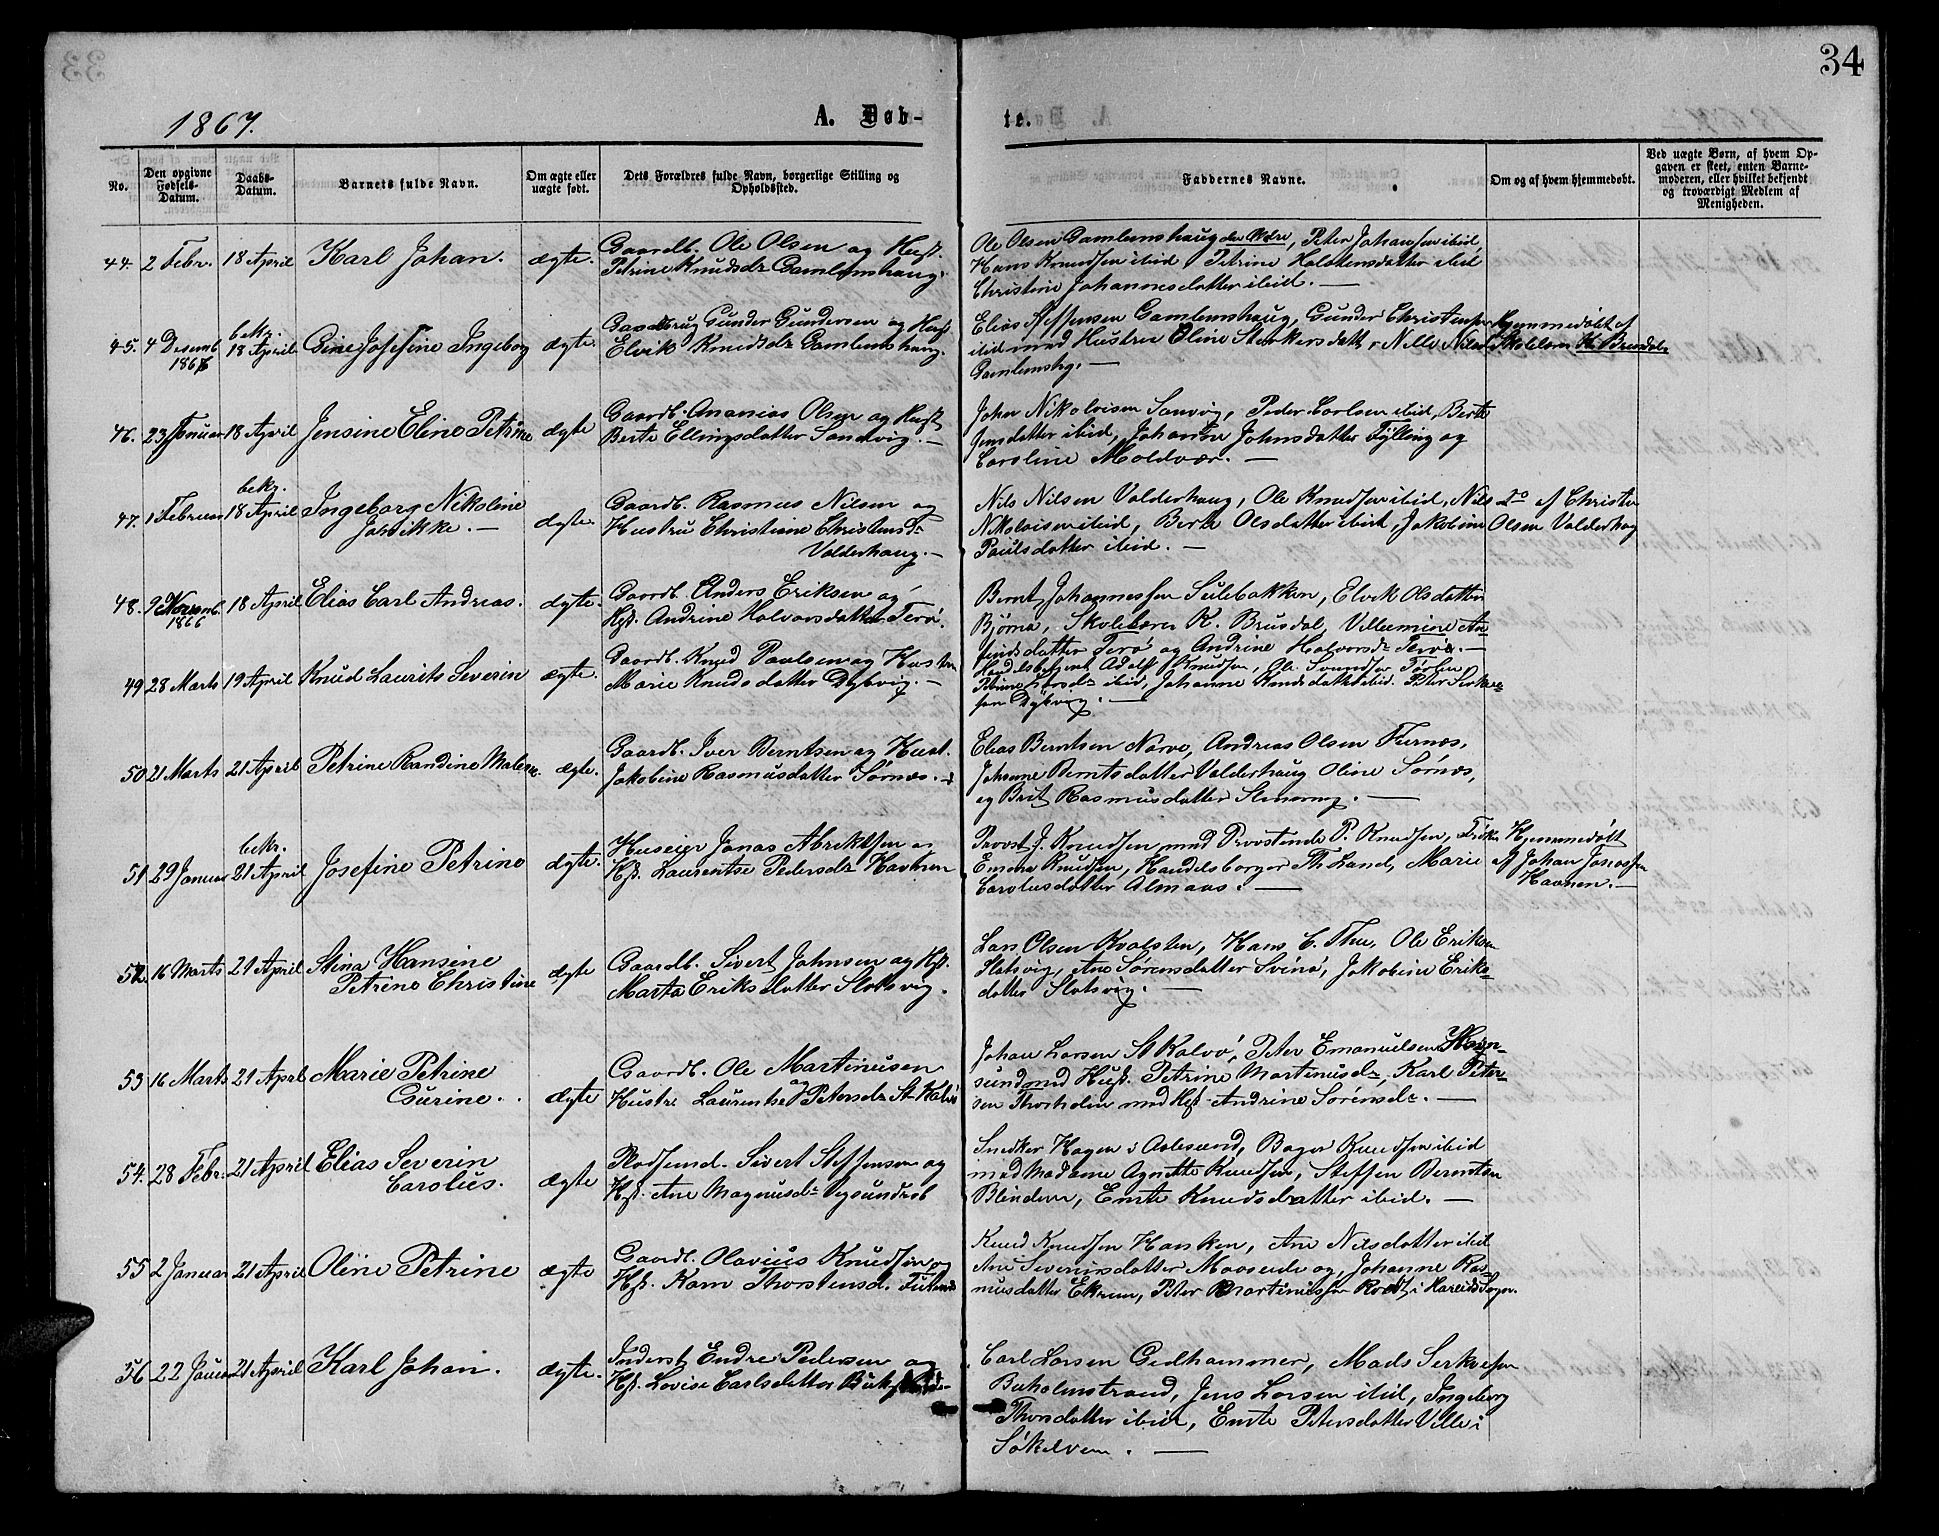 34
1867.
A. Døb-
te.
No.
Den opgivne Fødsels-Datum.
Daabs-Datum.
Barnets fulde Navn.
Om ægte eller uægte født.
Dets Forældres fulde Navn, borgerlige Stilling og Opholdssted.
Faddernes Navne.
Om og af hvem hjemmedøbt.
Ved uægte Børn, af hvem Opgaven er skeet, enten Barnemoderen, eller hvilket bekjendt og troværdigt Medlem af Menigheden.
44. 2 Febr. 18 April Karl Johan. ægte.
Gaardb. Ole Olsen og Hust.
Petrine Knudsdr Gamlemshaug.
Ole Olsen Gamlemshaug den Ældre, Peter Johansen ibid,
Hans Knudsen ibid Petrine Halstensdatter ibid
Christine Johannesdatter ibid. —
45. 4 Desemb. 1866 bekr. 18 April Gine Josefine Ingeborg ægte.
Gunder Gundersen og Hust.
Elvik Knudsdr Gamlemshaug.
Elias Steffensen Gamlemshaug, Gunder Christensen
ibid med Hustru Oline Sterkersdatt, Nille
Gamlemshg. —
Hjemmedøbt af
Skolelærer K. Brusdal
46. 23 Januar 18 April Jensine Eline Petrine ægte
Gaardb. Ananias Olsen og Hust
Berte Ellingsdatter Sandvig. —
John Nikolaisen Sanvig, Peder Carlsen ibid, Berte
Jensdatter ibid, Johanne Johnsdatter Tylling og
Caroline Moldvær. —
47. 1 Februar bekr. 18 April Ingeborg Nikoline
Jovikke. — ægte.
Gaardb. Rasmus Nilsen og
Hustru Christiane Christensdr
Valderhaug. —
Nils Nilsen Valderhaug, Ole Knudsen ibid, Nils
Nikolaisen ibid, Berte Olsdatter ibid, Jakobine
Paulsdatter ibid. —
Do af Christen
Olsen Valderhaug
48. 9 Novemb. 1866 18 April Elias Carl Andreas. ægte.
Gaardb. Anders Eriksen og
Hst. Andrine Halvorsdatter Terø.
Bernt Johannessen Sulebakken, Elvik Olsdatter
Bjørnø, Skolelærer K. Brusdal, Villumine An-
findsdatter Terø og Andrine Halvorsdr Terø. —
49 28 Marts 19 April Knud Laurits Severin ægte.
Gaardb. Knud Paulsen og Hustru
Marie Knudsdatter Dybvig. —
Adolf Knudsen, Ole
Petrine Larsdr ibid, Johanne Knudsdatter ibid. Peter
sen Dybvig. —
50 21 Marts 21 April Petrine Randine Malene. ægte.
Gaardb. Iver Berntsen og Hust.
Jakobine Rasmusdatter Sørnæs. —
Elias Berntsen Nørve, Andreas Olsen Furnæs,
Johanne Berntsdatter Valderhaug Oline Sørnæs,
og Brit Rasmusdatter —
51 29 Januar bekr. 21 April Josefine Petrine ægte.
Huseier Jonas og
Hst. Laurentse Pedersdr Havnen
Provst J. Knudsen med Provstinde P. Knudsen, Frøken
Emma Knudsen, Handelsborger Th. Land, Marie
Carolusdatter Almaas. —
Hjemmedøbt
af Johan Jonassen
Havnen. —
52. 16 Marts 21 April Stina Hansine
Petrine Christine ægte
Gaardb. Sivert Johnsen og Hst.
Marta Eriksdatter Slotsvig.
Lars Olsen Kvalsten, Hans C. Thue, Ole Eriksen
Slotsvig, Ane Sørensdatter Svinø, Jakobine Eriks-
datter Slotsvig. —
53 16 Marts 21 April Marie Petrine
Gurine. ægte
Gaardb. Ole Martinusen
og Hustru Laurentse Petersdr St. Kalvø
Johan Larsen St Kalvø, Peter Emanuelsen
sund med Hust. Petrine Martinusdr, Karl Peter-
sen Thorsholm med Hst Andrine Sørensdr. —
54. 28 Febr. 21 April Elias Severin
Carolus. ægte
Pladsmd. Sivert Steffensen og
Hst. Ane Magnusdr Vegsundreb
Snedker Hagen i Aalesund, Bager Knudsen ibid
med Madame Agnette Knudsen, Steffen Berntsen
Blindem, Emte Knudsdatter ibid. —
55 2 Januar 21 April Oline Petrine ægte
Gaardb. Olavius Knudsen og
Hst. Karn Thorstensd.
Knud Knudsen Hansken, Ane Nilsdatter ibid
Ane Severinsdatter Maaseide og Johanne Ras-
musdatter Ekrem, Peter Martinussen i Hareids Sogn.
56 22 Januar 21 April Karl Johan. ægte.
Inderst Endre Pedersen og
Hst. Lovise Carlsdatter
Carl Larsen Gedhammer, Mads
Buholmstrand, Jens Larsen ibid, Ingeborg
Thorsdatter ibid, Emte Petersdatter Velle i
Søkelven. —